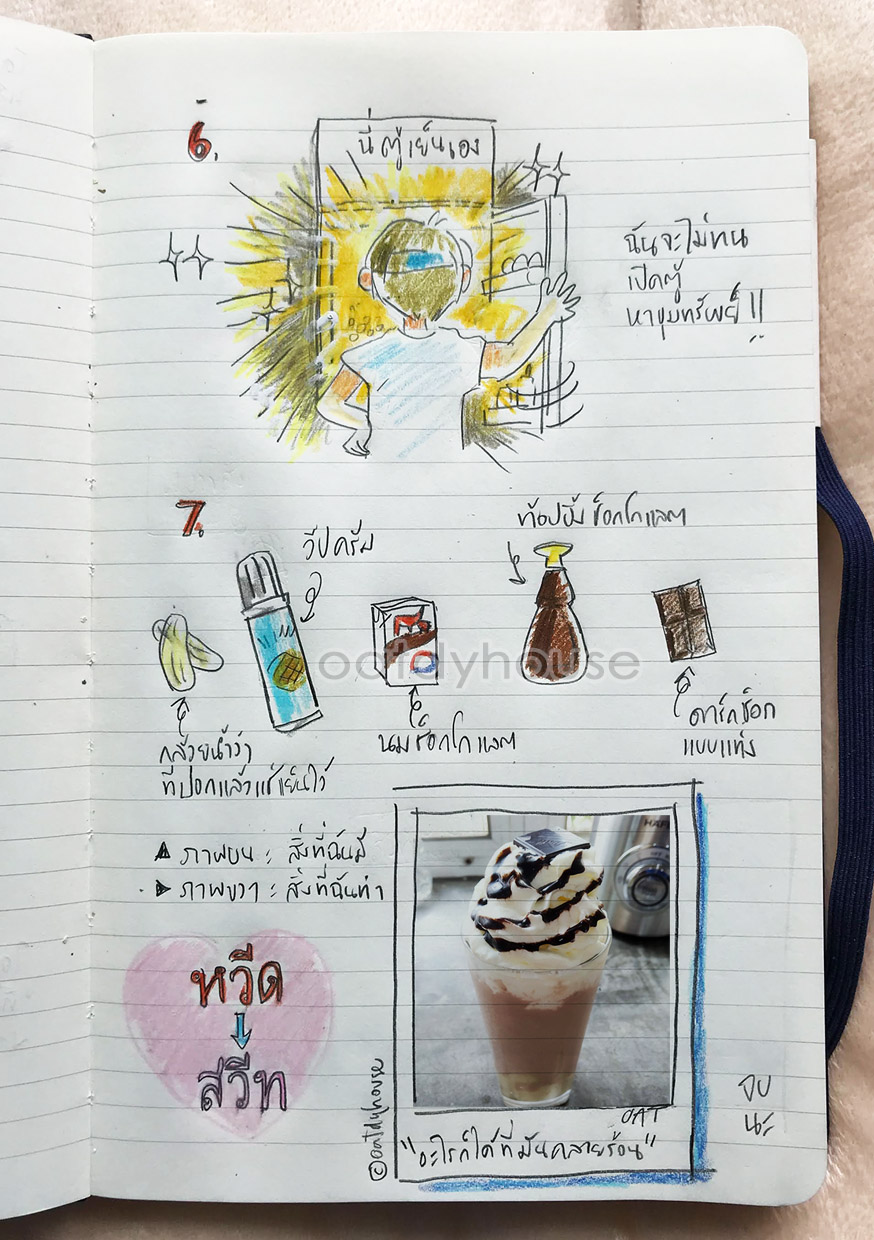 6.
นี่ตู้เย็นเอง
ฉันจะไม่ทน
เปิดตู้
หาขุมทรัพย์ !!
7.
วิปครีม
ท้อปปิ้งช็อกโกแลต
oatdyhouse
กล้วยน้ำว้า
ที่ปอกแล้วแช่เย็นไว้
นมช็อกโกแลต
ดาร์กช็อก
แบบแท่ง
▲ ภาพบน : สิ่งที่ฉันมี
► ภาพขวา : สิ่งที่ฉันทำ
หวีด
สวีท
©oatdyhouse
OAT
"อะไรก็ได้ที่มันคลายร้อน"
จบ
นะ